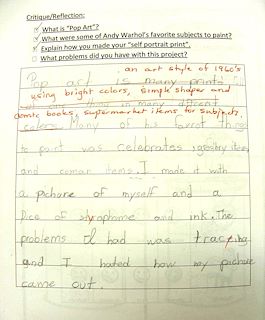 Critique/Reflection:
What is "Pop Art"?
What were some of Andy Warhol's favorite subjects to paint?
Explain how you made your "self portrait print".
What problems did you have with this project?
, an art style of 1960's
Pop art is many prints
using bright colors, simple shapes and
in many
comic books, supermarket items for subjects.
colers. Many of his things
to was celebrates, items
and items. I made it with
a pichure of myself and a
Pice of and ink. The
problems I had was tracing
and I hated how my pichure
came out.